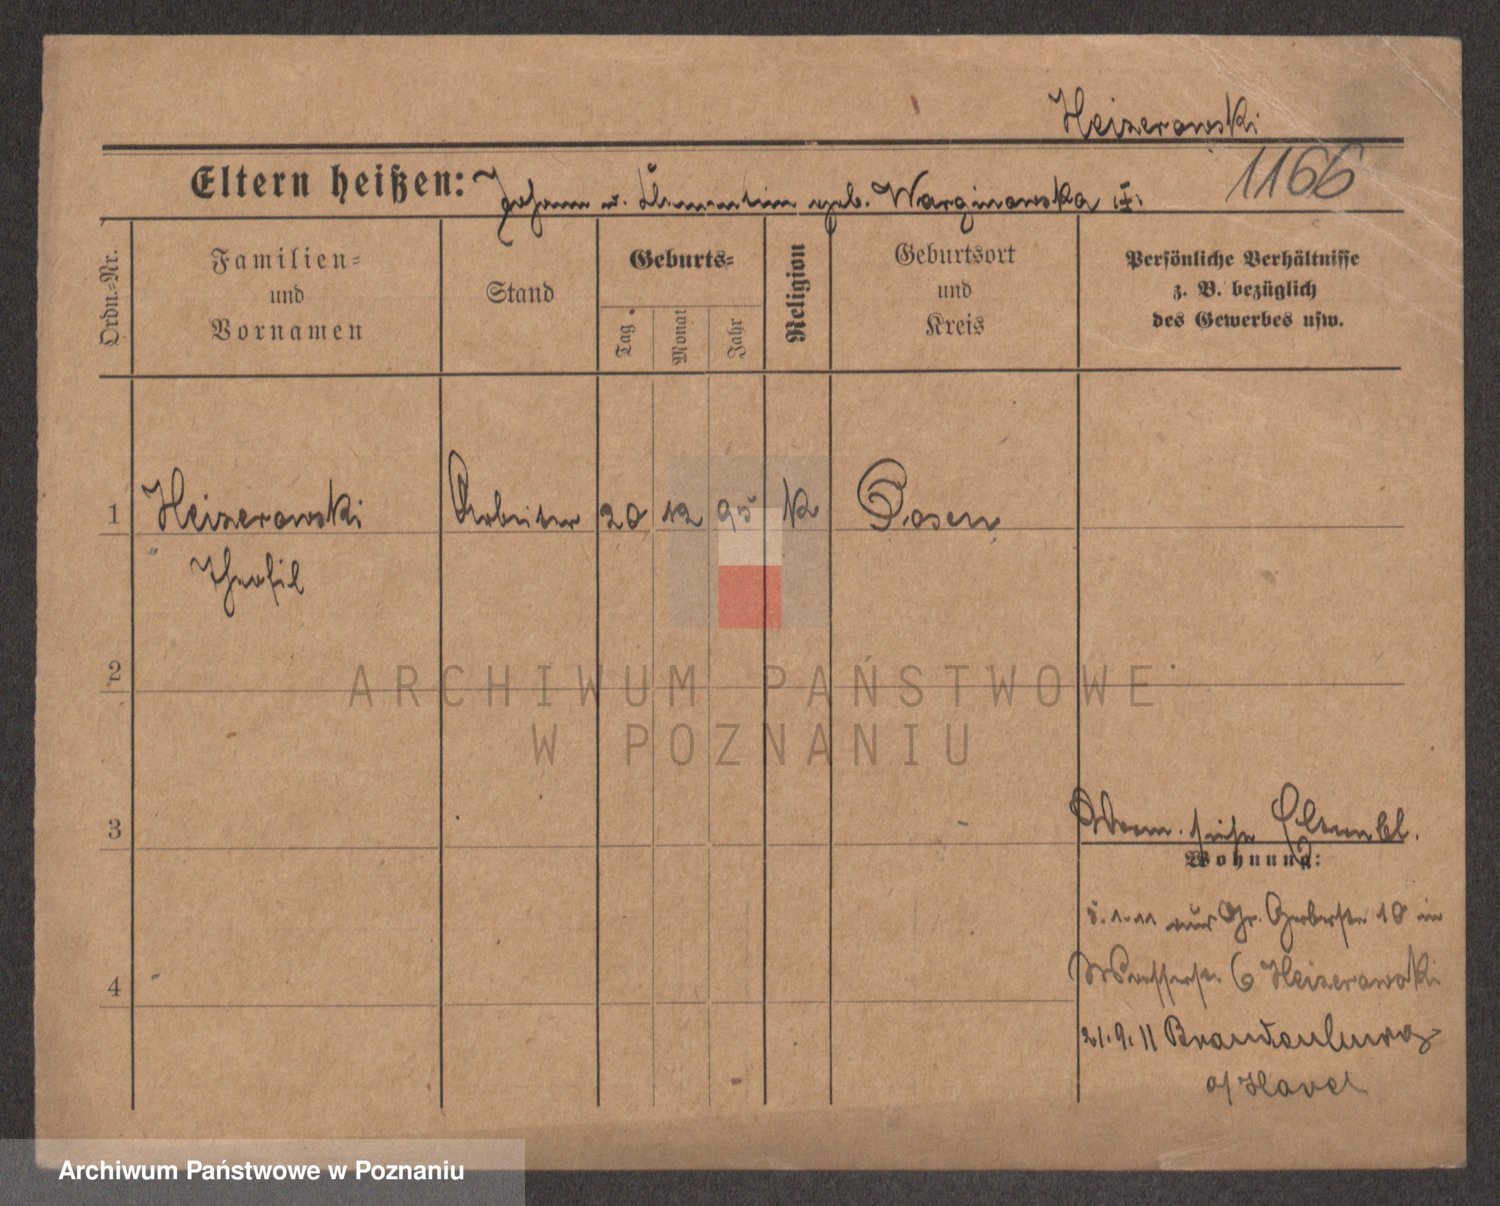 Heizerowski
1166
Eltern heißen: Johann u. geb. Warginowska
Ordn.-Nr.
Familien-
und
Vornamen
Stand
Geburts-
Tag
Monat
Jahr
Religion
Geburtsort
und
Kreis
Persönliche Verhältnisse
z. B. bezüglich
des Gewerbes usw.
1 Heizerowski Arbeiter 20 12 95 K Posen
Theofil
2
ARCHIWUM PAŃSTWOWE
W POZNANIU
3
siehe
Wohnung:
5.1.11 Gr. Gerberstr 18 in
4
Wasserstr 6 Heizerowski
21.9.11 Brandenburg
a/Havel
Archiwum Państwowe w Poznaniu